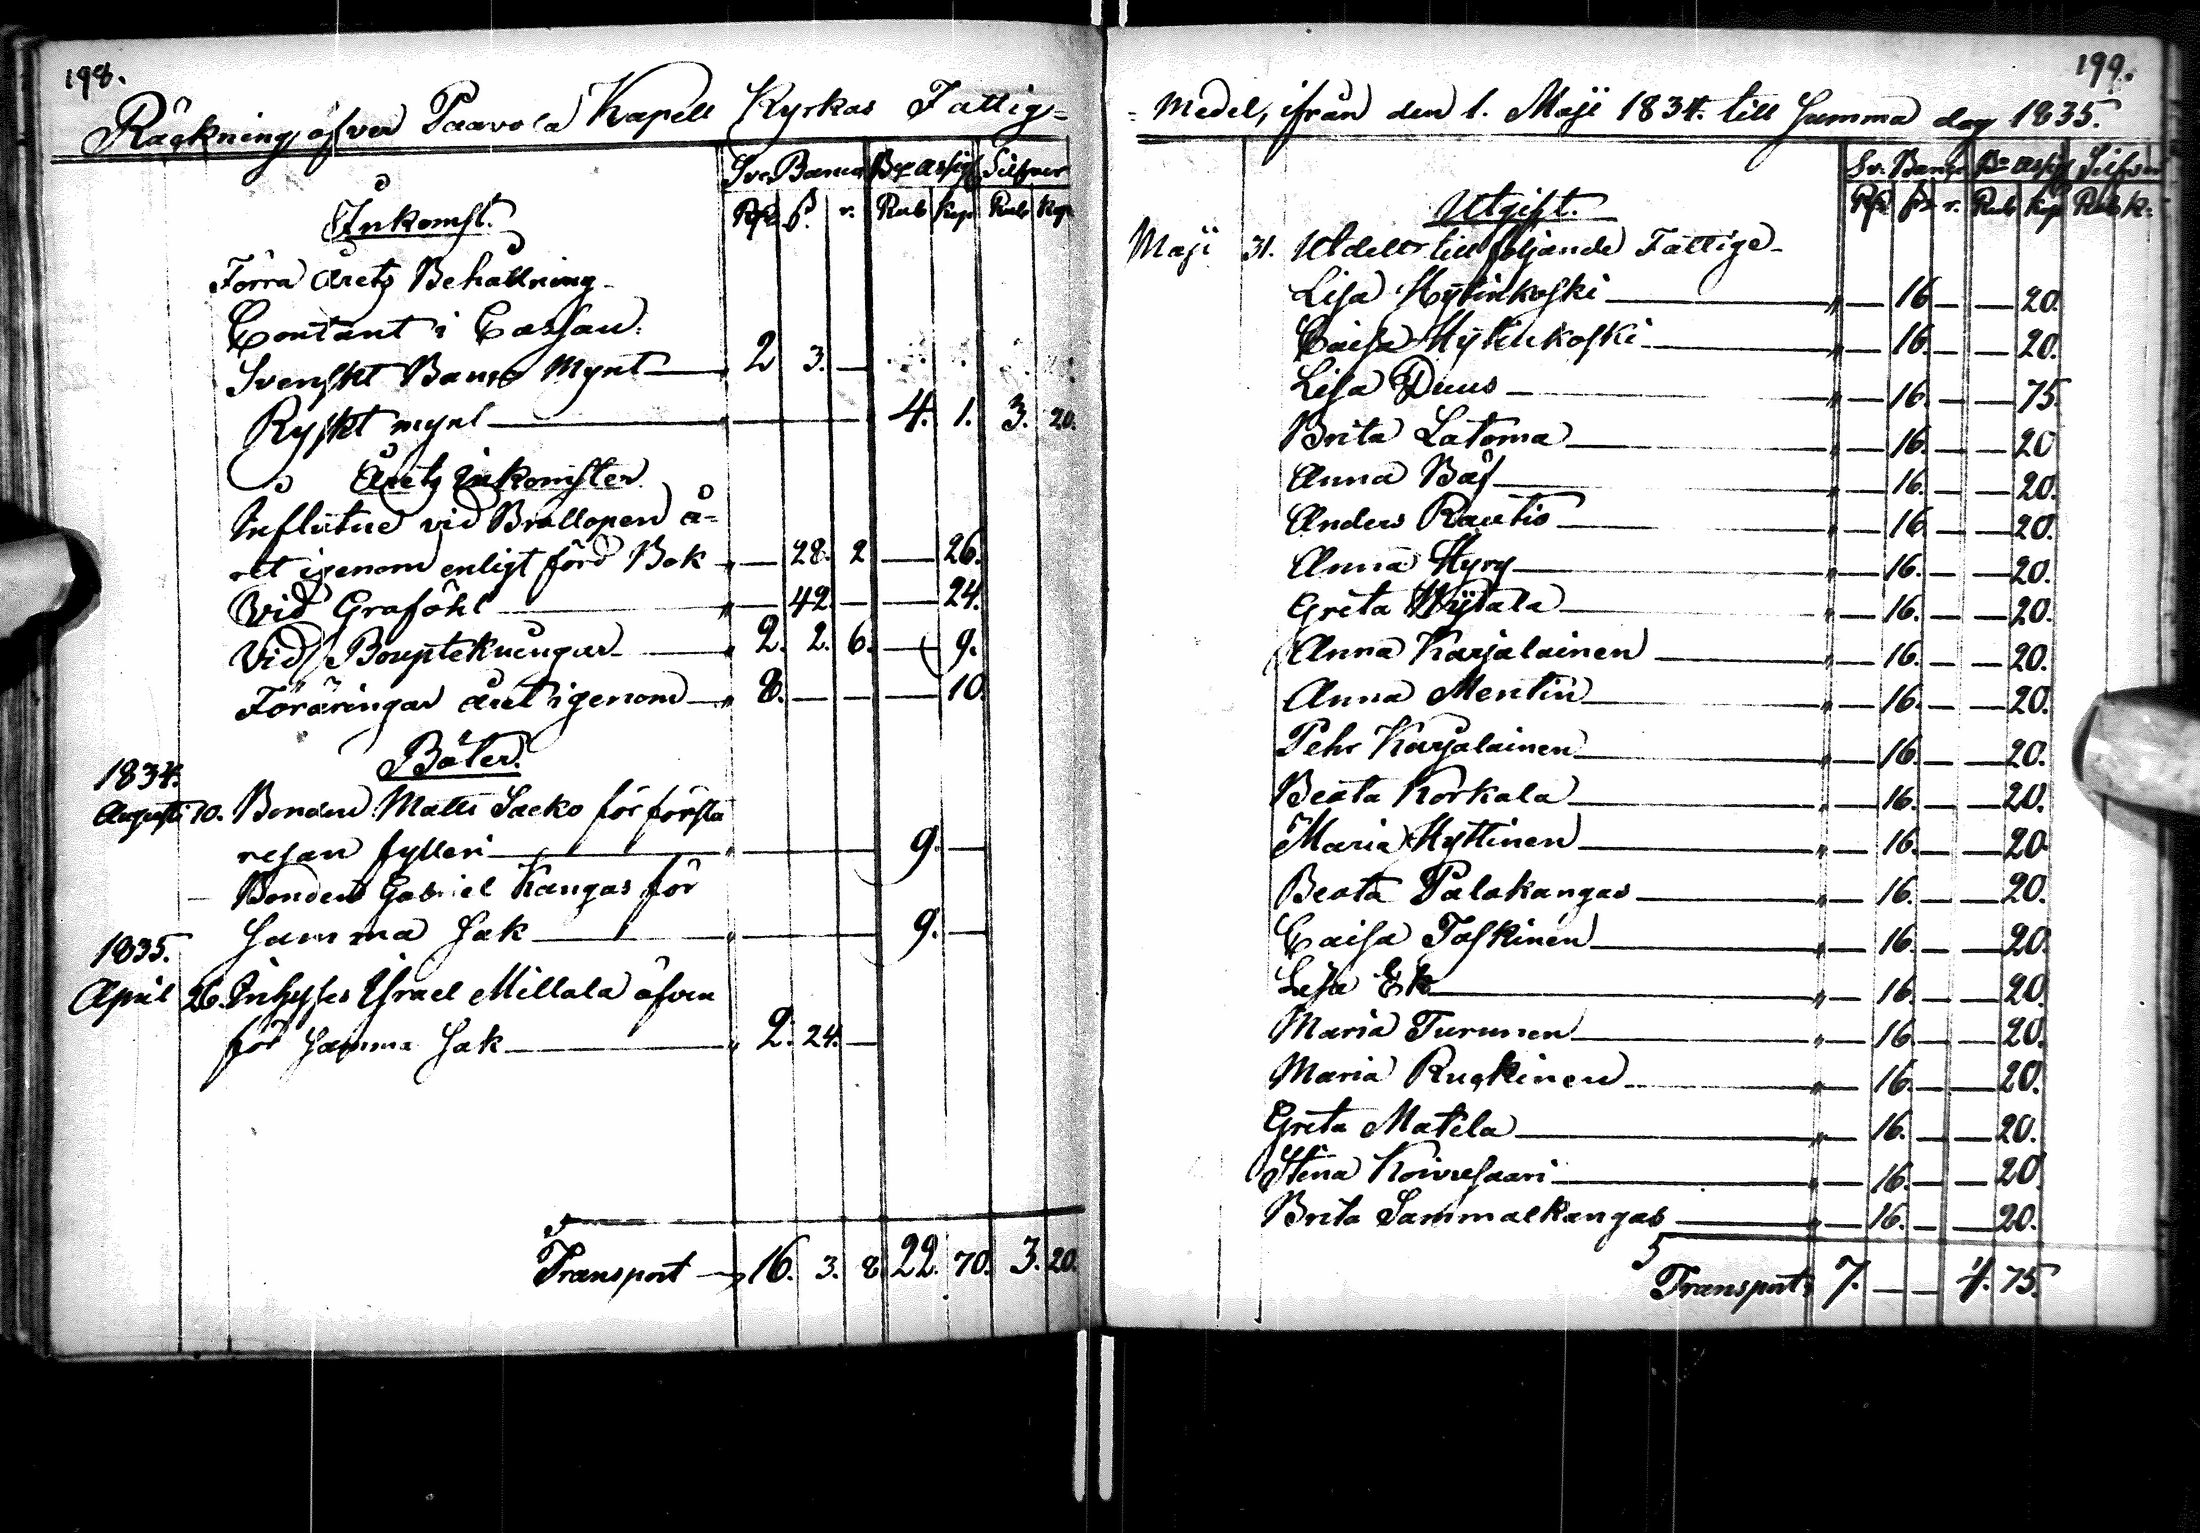 198.
Räckning öfver Paavola Kapell Kyrkas Fattig=
Sv. Banco B:co Assig Silfver
Rdr ß. r. Rub Kop Rub Kop
Inkomst.
Förra årets Behållning
Contant i Cassan:
Svenskt Banco Mynt 2 3. —
Ryskt mynt " — — — 4. 1. 3. 20.
Årets Inkomster
Influtne vid Bröllopen å=
ret igenom enligt förd Bok " — 28. 2 — 26.
Vid Graföhl " — 42. — — 24.
Vid Bouptekningar " 2. 2. 6. — 9.
Föräringar året igenom " 8. — — — 10.
Böter.
1834.
Augusti 10. Bonden Matts Sacko för första
resan fylleri " — — — 9. —
— Bonden Gabriel Kangas för
samma sak " — — — 9. —
1835.
April 26. Inhyses Israel Millala äfven
för samma sak " 2. 24. —
Transport " 16. 3. 8. 22. 70. 3. 20.
199.
= Medel, ifrån den 1. Maji 1834. till samma dag 1835.
Sv. Banco B:co Assig Silfver
Rdr ß r. Rub Kop Rub K.
Utgift.
Maji 31. Utdelt till följande Fattige
Lisa Hyttinkoski " — 16 — — 20.
Caisa Hyttinkoski " — 16. — — 20.
Lisa Duus " — 16. — — 75.
Brita Latoma " — 16. — — 20
Anna Bäf " — 16. — — 20.
Anders Rautio " — 16. — — 20.
Anna Hyry " — 16. — — 20.
Greta Wÿtala " — 16. — — 20.
Anna Karjalainen " — 16. — — 20.
Anna Mentin " — 16. — — 20.
Pehr Karjalainen " — 16. — — 20.
Beata Korkala " — 16. — — 20.
Maria Hyttinen " — 16. — — 20.
Beata Palokangas " — 16. — — 20.
Caisa Toskinen " — 16. — — 20.
Lisa Ek " — 16. — — 20.
Maria Turunen " — 16. — — 20.
Maria Ruckinen " — 16. — — 20.
Greta Matila " — 16. — — 20.
Stina Koivusaari " — 16. — — 20.
Brita Sammalkangas " — 16. — — 20.
Transport " 7. — — 4. 75.